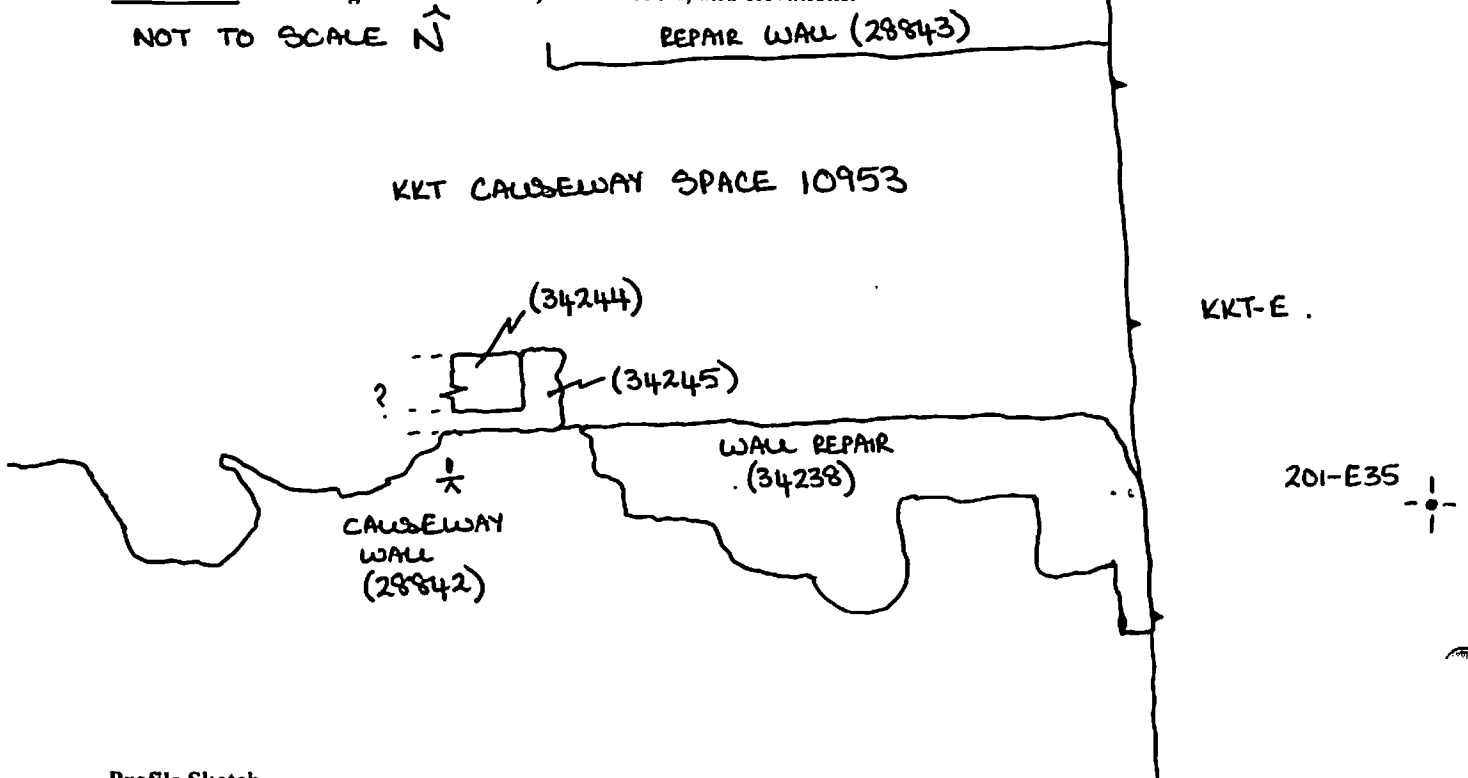 NOT TO SCALE N
REPAIR WALL (28843)
KKT CAUSEWAY SPACE 10953
(34244)
KKT-E .
(34245)
?
WALL REPAIR
(34238)
201-E35
CAUSEWAY
WALL
(28842)
Profile Sketch